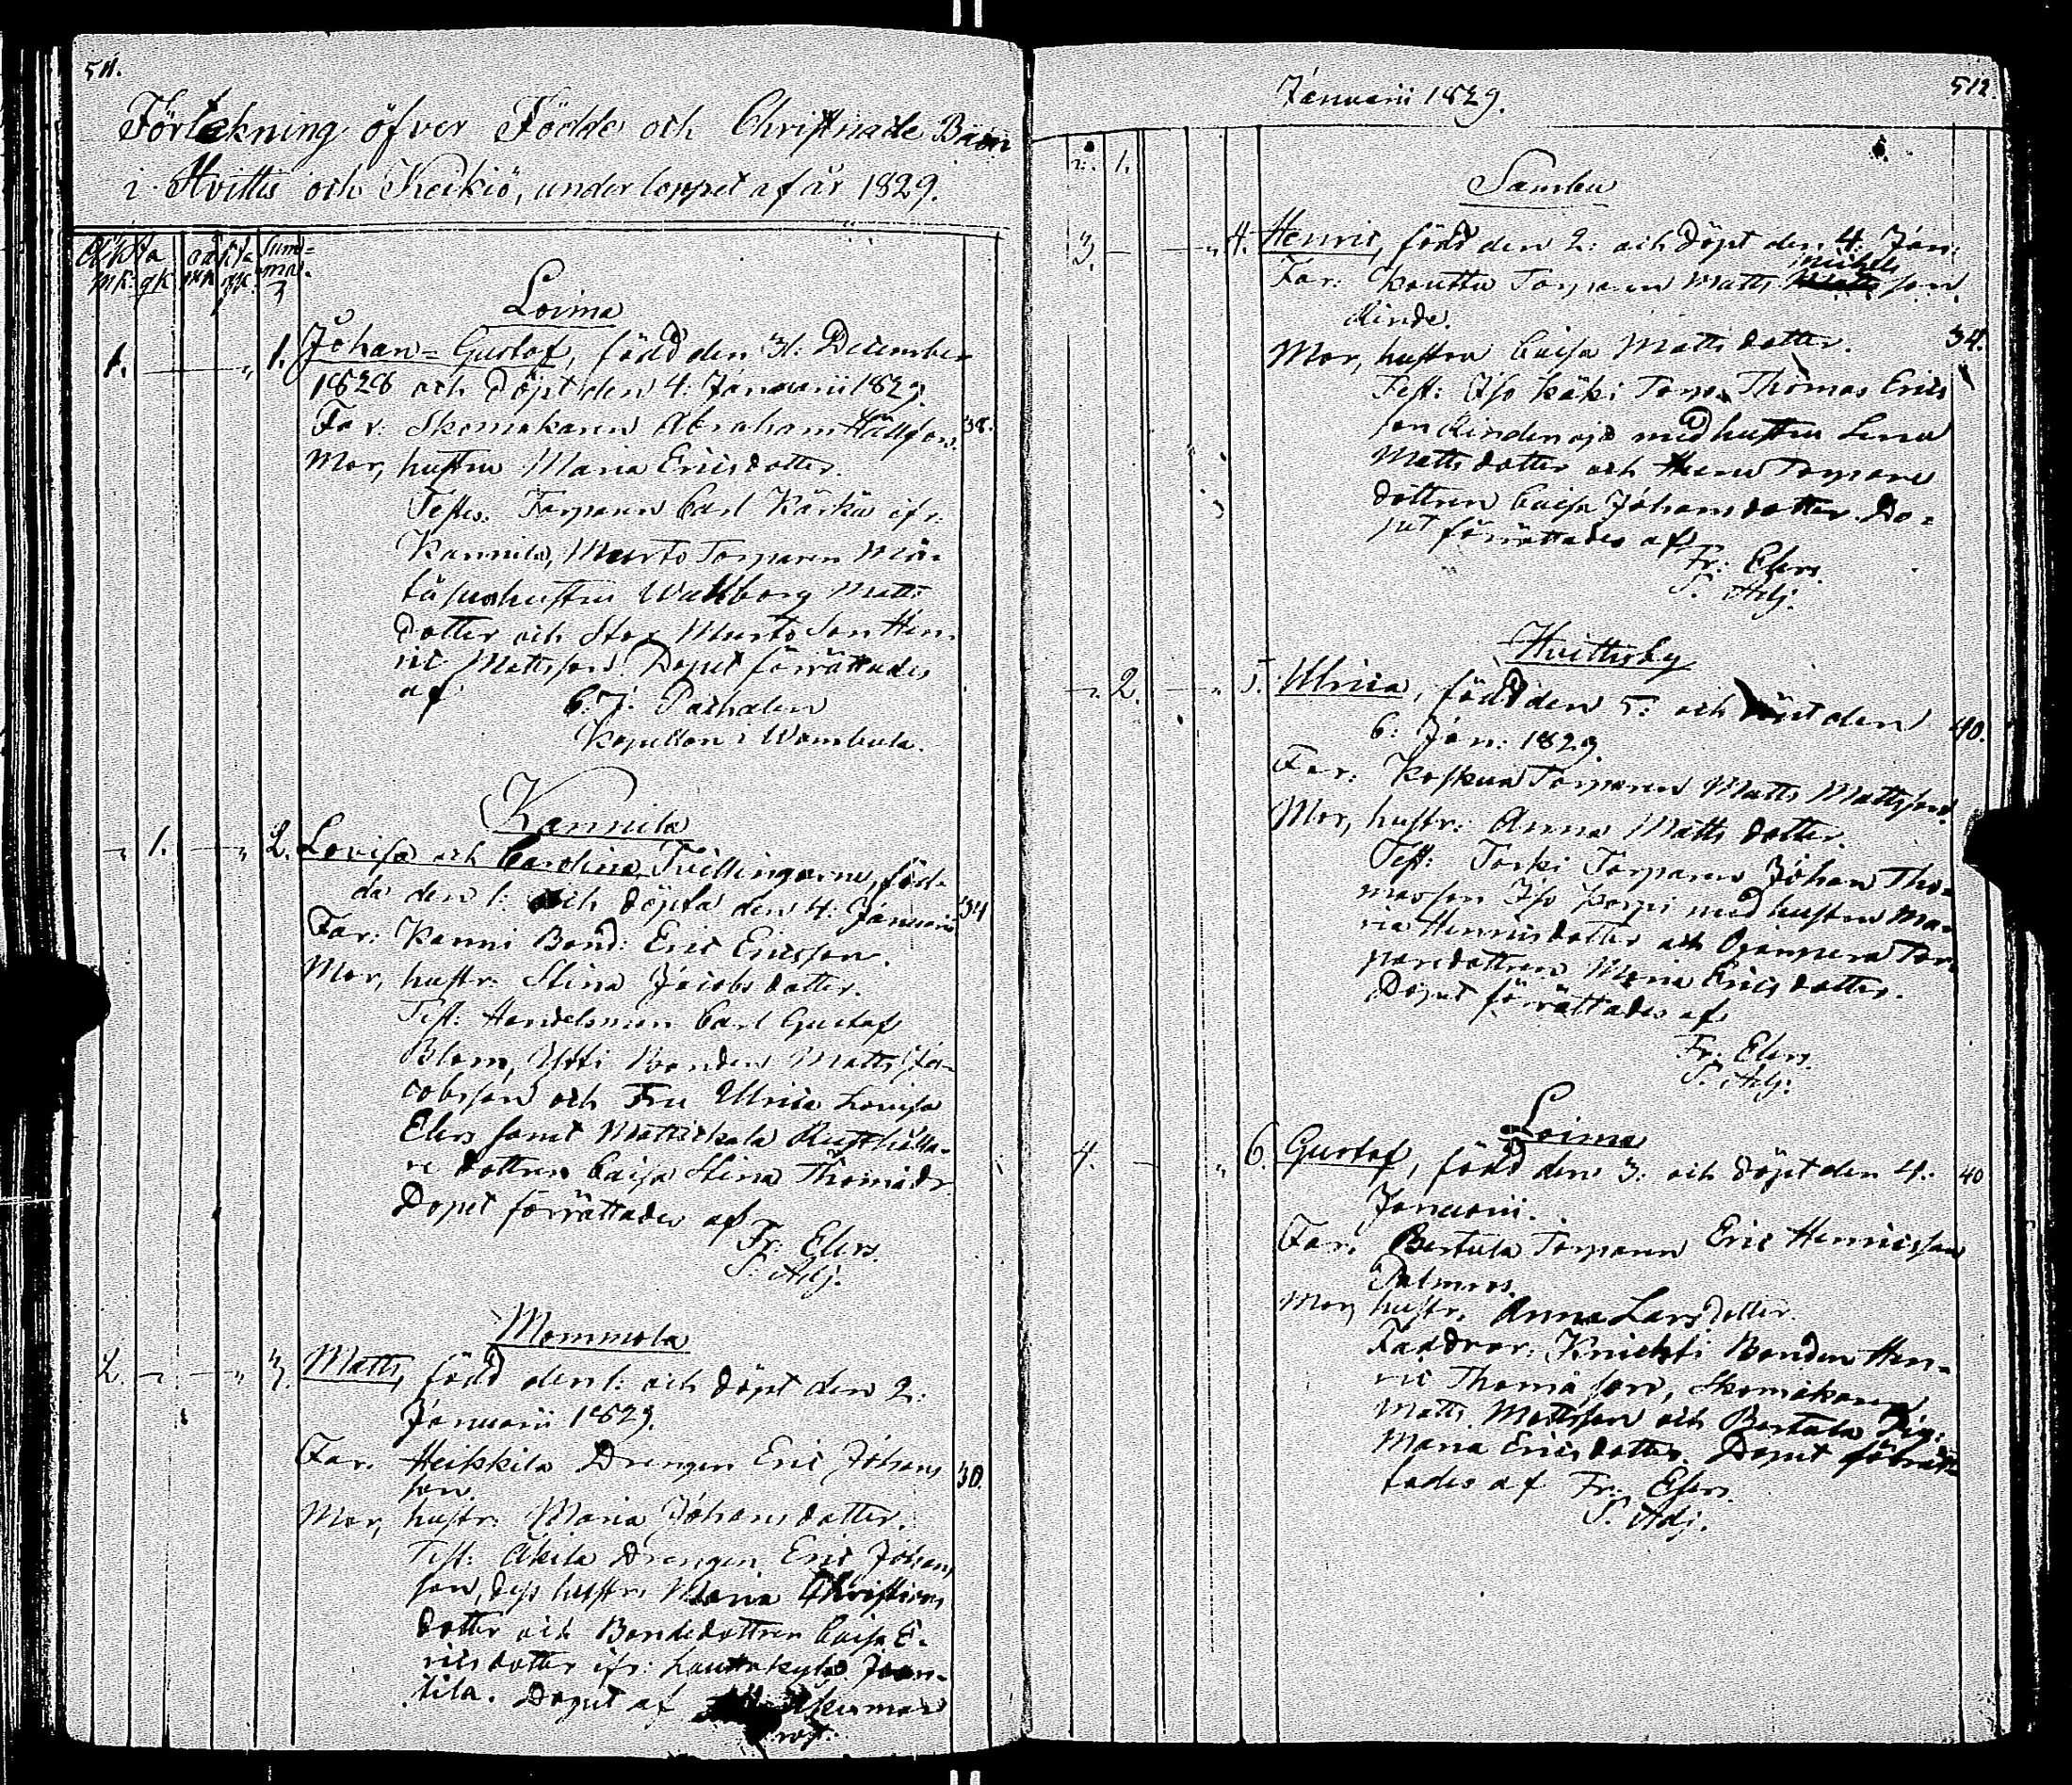 511.
Förtekning öfver Födde och Christnade Barn
i Hvittis och Keikiö, under loppet af år 1829.
Äkta oäkta Sum-
mk: qk mk qk: ma.
Loima
1. 1. Johan-Gustof, född den 31: December
1828 och döpt den 4: Januarii 1829.
Far: Skomakaren Abraham Hällfors. 38.
Mor, hustru Maria Ericsdotter.
Testes: Torparen Carl Kärki ifr:
Kannila, Murto Torparen
hustru Wallborg Matts
dotter och Stor Murto Son Hen-
ric Mattsson. Dopet förrättades
af C. J. Paihalen
Kapellan i Wambula.
Kannila
1. 2. Lovisa och Carolina, Tvillingarne, föd-
da den 1: och döpta den 4: Januarii 34
Far: Kanni Bond: Eric Ericsson.
Mor, hustr: Stina Jacobsdotter.
Test: Handelsman Carl Gustaf
Blom, Ytti Bonden Matts Ja-
cobsson och Fru Ulrica Lovisa
Elers samt Mattickala Rusthålla-
re dottren Caisa Stina Thomädr.
Dopet förrättades af
Fr: Elers.
P. Adj.
Mommola
2. 3. Matts, född den 1: och döpt den 2:
Januarii 1829.
Far. Heikkila Drengen Eric Johans
son. 30.
Mor, hustr: Maria Johansdotter.
Test: Äkila Drengen Eric Johans
son, dess hustru Maria Christians
dotter och Bondedottren Caisa E-
ricsdotter ifr: Lauttakylä Jaan-
tila. Dopet af
Januarii 1829. 512.
2. 1.
Sambu
3. 4. Henric, född den 2: och döpt den 4: Jan:
Far: Koutta Torparen Matts Michels son
Rinde.
Mor, hustru Caisa Matts dotter. 34.
Test: Iso Käki Torp. Thomas Erics
son Rindenojo med hustru Lena
Matts dotter och Torpare
dottren Caisa Johansdotter. Do-
pet förrättades af
Fr: Elers.
P. Adj.
Hvittisby
2. 5. Ulrica, född den 5: och döpt den 40.
6: Jan: 1829.
Far: Koskua Torparen Matts Mattsson.
Mor, hustr: Anna Matts dotter.
Test: Torki Torparen Johan Tho-
masson Iso Karpi med hustru Ma-
ria Henricsdotter och Ojanpera Tor-
paredottren Maria Ericsdotter.
Dopet förrättades af
Fr: Elers.
P. Adj.
Loima
4. 6. Gustaf, född den 3: och döpt den 4: 40
Januarii.
Far. Bertula Torparen Eric Henricsson
Palmros.
Mor, hustr. Anna Larsdotter.
Faddrar: Knichti Bonden Hen-
ric Thomasson, Skomakaren
Matts Mattsson och Bertula Pig:
Maria Ericsdotter. Dopet förrät-
tades af Fr: Elers.
P. Adj.